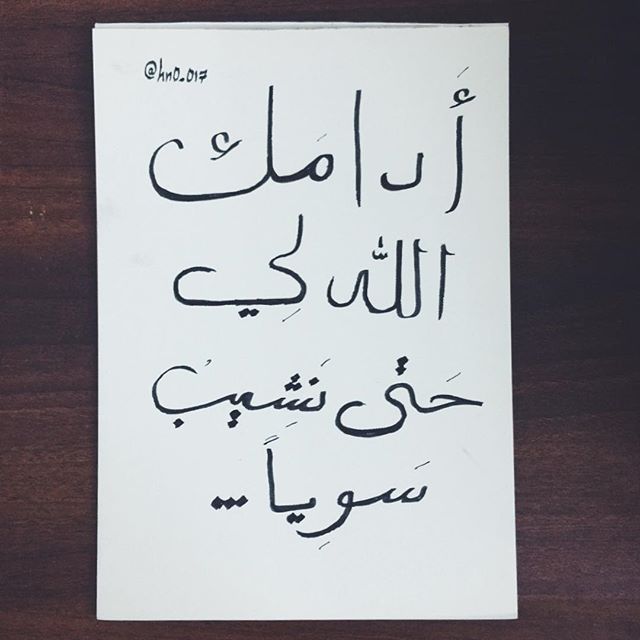 @hn0_017
أَدامَك
الله لِي
حَتى نَشِيبُ
سَوِياً...